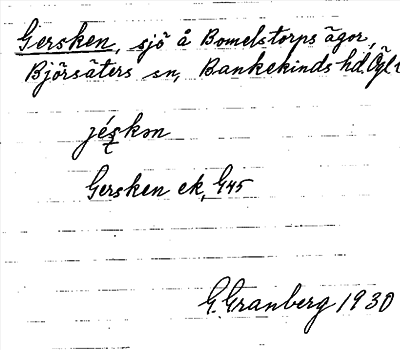 Gersken, sjö å Bomelstorps ägor,
Björsäters sn, Bankekinds hd. Ögl.
jéskən
Gersken ek, G45
G. Granberg 1930